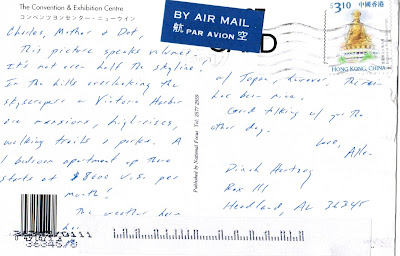 The Convention & Exhibition Centre
コンベンツヨンセンター・ニューウイン
Charles, Mother & Dot,
This picture speaks volumes.
It's not even half the skyline!
In the hills overlooking the
skyscrapers or Victoria Harbor
are mansions, high-rises,
walking trails & parks. A
1 bedroom apartment up there
starts at $8000 U.S. per
month!
The weather here
BY AIR MAIL
航 PAR AVION 空
$3.10 中國香港
HONG KONG, CHINA
Published by National Focus Tel: 2577 2938
w/ Japan, however,
has been nice.
Good talking w/ you the
other day.
Love,
Allen
Box 111
Headland, AL 36345